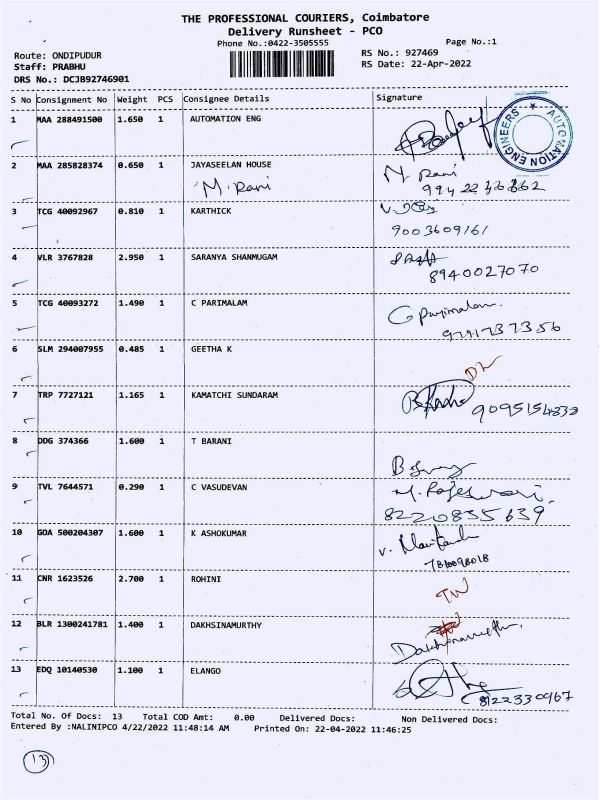 THE PROFESSIONAL COURIERS, Coimbatore
Delivery Runsheet - PCO
Phone No.:0422-3505555
Page No.:1
Route: ONDIPUDUR
RS No.: 927469
Staff: PRABHU
RS Date: 22-Apr-2022
DRS No.: DCJB92746901
S No Consignment No Weight PCS Consignee Details Signature
1 MAA 288491500 1.650 1 AUTOMATION ENG
AUTOMATION ENGINEERS
2 MAA 285828374 0.650 1 JAYASEELAN HOUSE
M. Rani
Rani
3 TCG 40092967 0.810 1 KARTHICK
9003609161
4 VLR 3767828 2.950 1 SARANYA SHANMUGAM
8940027070
5 TCG 40093272 1.490 1 C PARIMALAM
G Parimalam
9791737356
6 SLM 294007955 0.485 1 GEETHA K
DL
7 TRP 7727121 1.165 1 KAMATCHI SUNDARAM
8 DDG 374366 1.600 1 T BARANI
9 TVL 7644571 0.290 1 C VASUDEVAN
M. Rajeswari.
8220835639
10 GOA 500204307 1.600 1 K ASHOKUMAR
11 CNR 1623526 2.700 1 ROHINI
TW
12 BLR 1300241781 1.400 1 DAKHSINAMURTHY
13 EDQ 10140530 1.100 1 ELANGO
8122330967
Total No. Of Docs: 13 Total COD Amt: 0.00 Delivered Docs: Non Delivered Docs:
Entered By :NALINIPCO 4/22/2022 11:48:14 AM Printed On: 22-04-2022 11:46:25
13